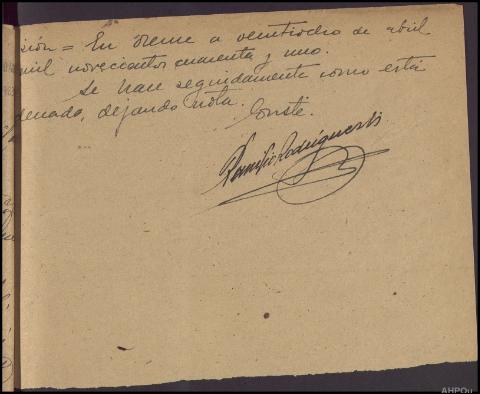 sión = En Orense a veintiocho de abril
mil novecientos cuarenta y uno.
Se hace seguidamente como está
denado, dejando nota. Consté.
Ramiro Rodríguez
AHPOu